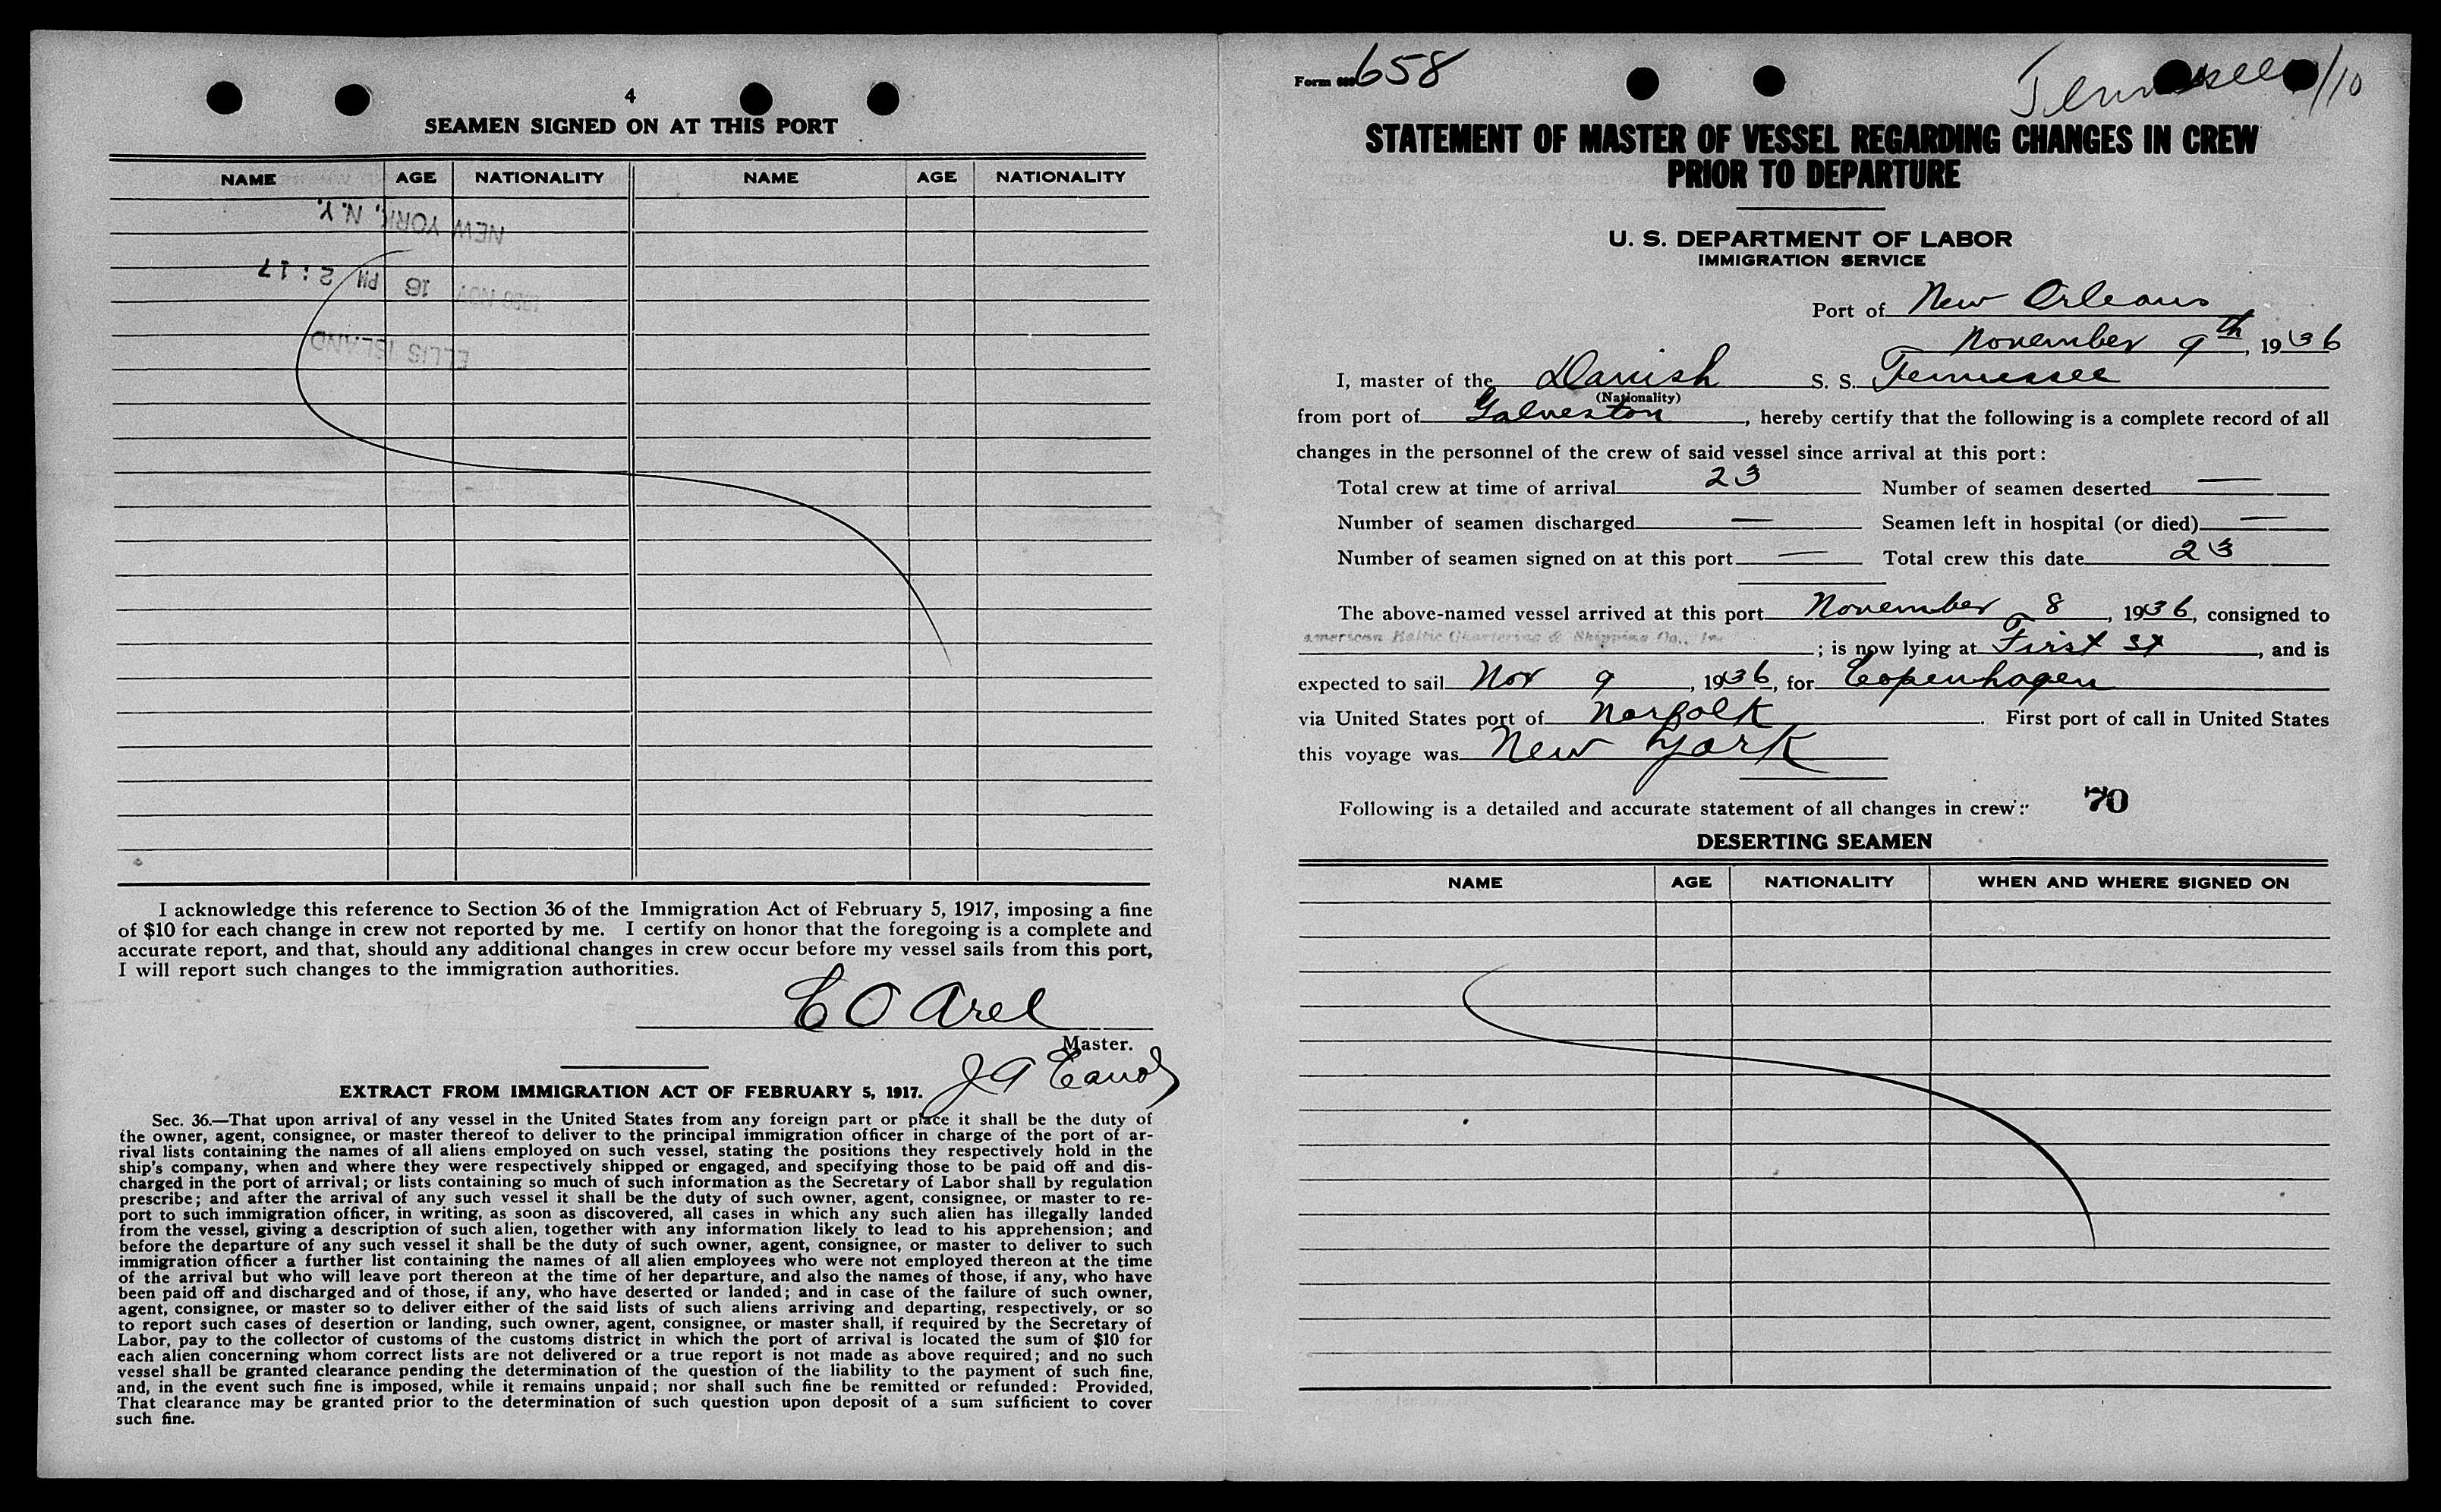 4
SEAMEN SIGNED ON AT THIS PORT
NAME AGE NATIONALITY NAME AGE NATIONALITY
NEW YORK, N.Y.
1936 NOV 16 PM 2:17
ELLIS ISLAND
I acknowledge this reference to Section 36 of the Immigration Act of February 5, 1917, imposing a fine
of $10 for each change in crew not reported by me. I certify on honor that the foregoing is a complete and
accurate report, and that, should any additional changes in crew occur before my vessel sails from this port,
I will report such changes to the immigration authorities.
C O Arel
Master.
J A
EXTRACT FROM IMMIGRATION ACT OF FEBRUARY 5, 1917.
Sec. 36.—That upon arrival of any vessel in the United States from any foreign part or place it shall be the duty of
the owner, agent, consignee, or master thereof to deliver to the principal immigration officer in charge of the port of ar-
rival lists containing the names of all aliens employed on such vessel, stating the positions they respectively hold in the
ship's company, when and where they were respectively shipped or engaged, and specifying those to be paid off and dis-
charged in the port of arrival; or lists containing so much of such information as the Secretary of Labor shall by regulation
prescribe; and after the arrival of any such vessel it shall be the duty of such owner, agent, consignee, or master to re-
port to such immigration officer, in writing, as soon as discovered, all cases in which any such alien has illegally landed
from the vessel, giving a description of such alien, together with any information likely to lead to his apprehension; and
before the departure of any such vessel it shall be the duty of such owner, agent, consignee, or master to deliver to such
immigration officer a further list containing the names of all alien employees who were not employed thereon at the time
of the arrival but who will leave port thereon at the time of her departure, and also the names of those, if any, who have
been paid off and discharged and of those, if any, who have deserted or landed; and in case of the failure of such owner,
agent, consignee, or master so to deliver either of the said lists of such aliens arriving and departing, respectively, or so
to report such cases of desertion or landing, such owner, agent, consignee, or master shall, if required by the Secretary of
Labor, pay to the collector of customs of the customs district in which the port of arrival is located the sum of $10 for
each alien concerning whom correct lists are not delivered or a true report is not made as above required; and no such
vessel shall be granted clearance pending the determination of the question of the liability to the payment of such fine,
and, in the event such fine is imposed, while it remains unpaid; nor shall such fine be remitted or refunded: Provided,
That clearance may be granted prior to the determination of such question upon deposit of a sum sufficient to cover
such fine.
Form 658
Tennessee 1/10
STATEMENT OF MASTER OF VESSEL REGARDING CHANGES IN CREW
PRIOR TO DEPARTURE
U. S. DEPARTMENT OF LABOR
IMMIGRATION SERVICE
Port of New Orleans
November 9th, 1936
I, master of the Danish S. S. Tennessee
(Nationality)
from port of Galveston, hereby certify that the following is a complete record of all
changes in the personnel of the crew of said vessel since arrival at this port:
Total crew at time of arrival 23 Number of seamen deserted —
Number of seamen discharged — Seamen left in hospital (or died) —
Number of seamen signed on at this port — Total crew this date 23
The above-named vessel arrived at this port November 8, 1936, consigned to
American Baltic Chartering & Shipping Co., Inc ; is now lying at First St, and is
expected to sail Nov 9, 1936, for Copenhagen
via United States port of Norfolk. First port of call in United States
this voyage was New York
Following is a detailed and accurate statement of all changes in crew: 70
DESERTING SEAMEN
NAME AGE NATIONALITY WHEN AND WHERE SIGNED ON